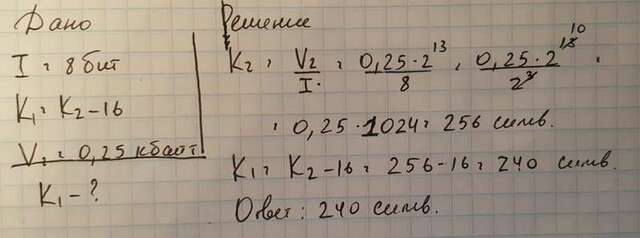 Дано
I = 8 бит
K₁ = K₂ - 16
V₂ = 0,25 кбайт
K₁ - ?
Решение
K₂ = V₂/I = 0,25 · 2¹³/8 = 0,25 · 2¹³ ¹⁰/2³ =
= 0,25 · 1024 = 256 симв.
K₁ = K₂ - 16 = 256 - 16 = 240 симв.
Ответ: 240 симв.